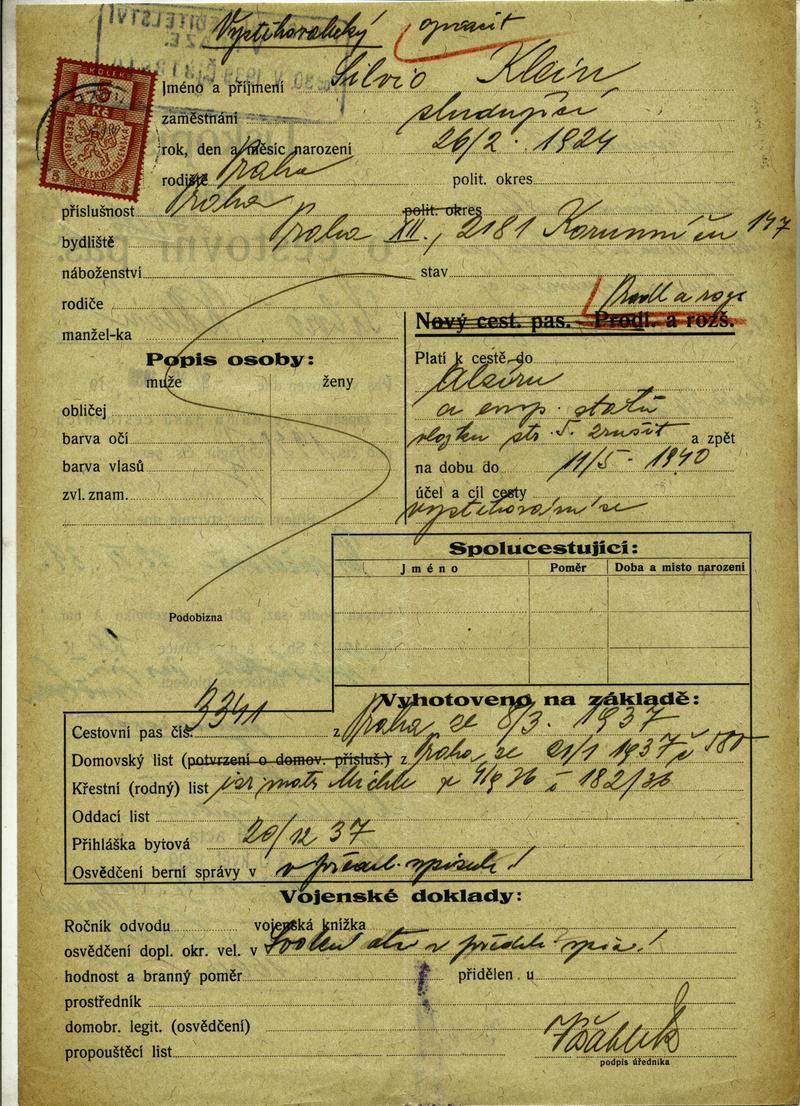 Vystěhovalecký opravit
KOLEK
5
Kč
REPUBLIKA ČESKOSLOVENSKÁ
5 1938 5
Jméno a příjmení Silvio Klein
zaměstnání studující
rok, den a měsíc narození 26/2. 1924
rodiště Praha polit. okres
příslušnost Praha polit. okres
bydliště Praha XII., 2181 Korunní čn 147
náboženství stav
rodiče
manžel-ka
Prodl a rozš
Nový cest. pas. - Prodl. a rozš.
Popis osoby:
muže ženy
obličej
barva očí
barva vlasů
zvl. znam.
Platí k cestě do
a evrop. států
vložku str. 5. zrušit a zpět
na dobu do 11/5. 1940
účel a cíl cesty
vystěhování se
Spolucestující:
Jméno Poměr Doba a místo narození
Podobizna
Vyhotoveno na základě:
Cestovní pas čís. 3341 z Praha ze 8/3. 1937
Domovský list (potvrzení o domov. přísluš.) z Praha, ze 21/1 1937 č 580
Křestní (rodný) list izr. matr. Michle č 182/36
Oddací list
Přihláška bytová 20/12 37
Osvědčení berní správy v v předch. spisech!
Vojenské doklady:
Ročník odvodu vojenská knížka
osvědčení dopl. okr. vel. v Svolení otce v předch. spise!
hodnost a branný poměr přidělen u
prostředník
domobr. legit. (osvědčení)
propouštěcí list
podpis úředníka